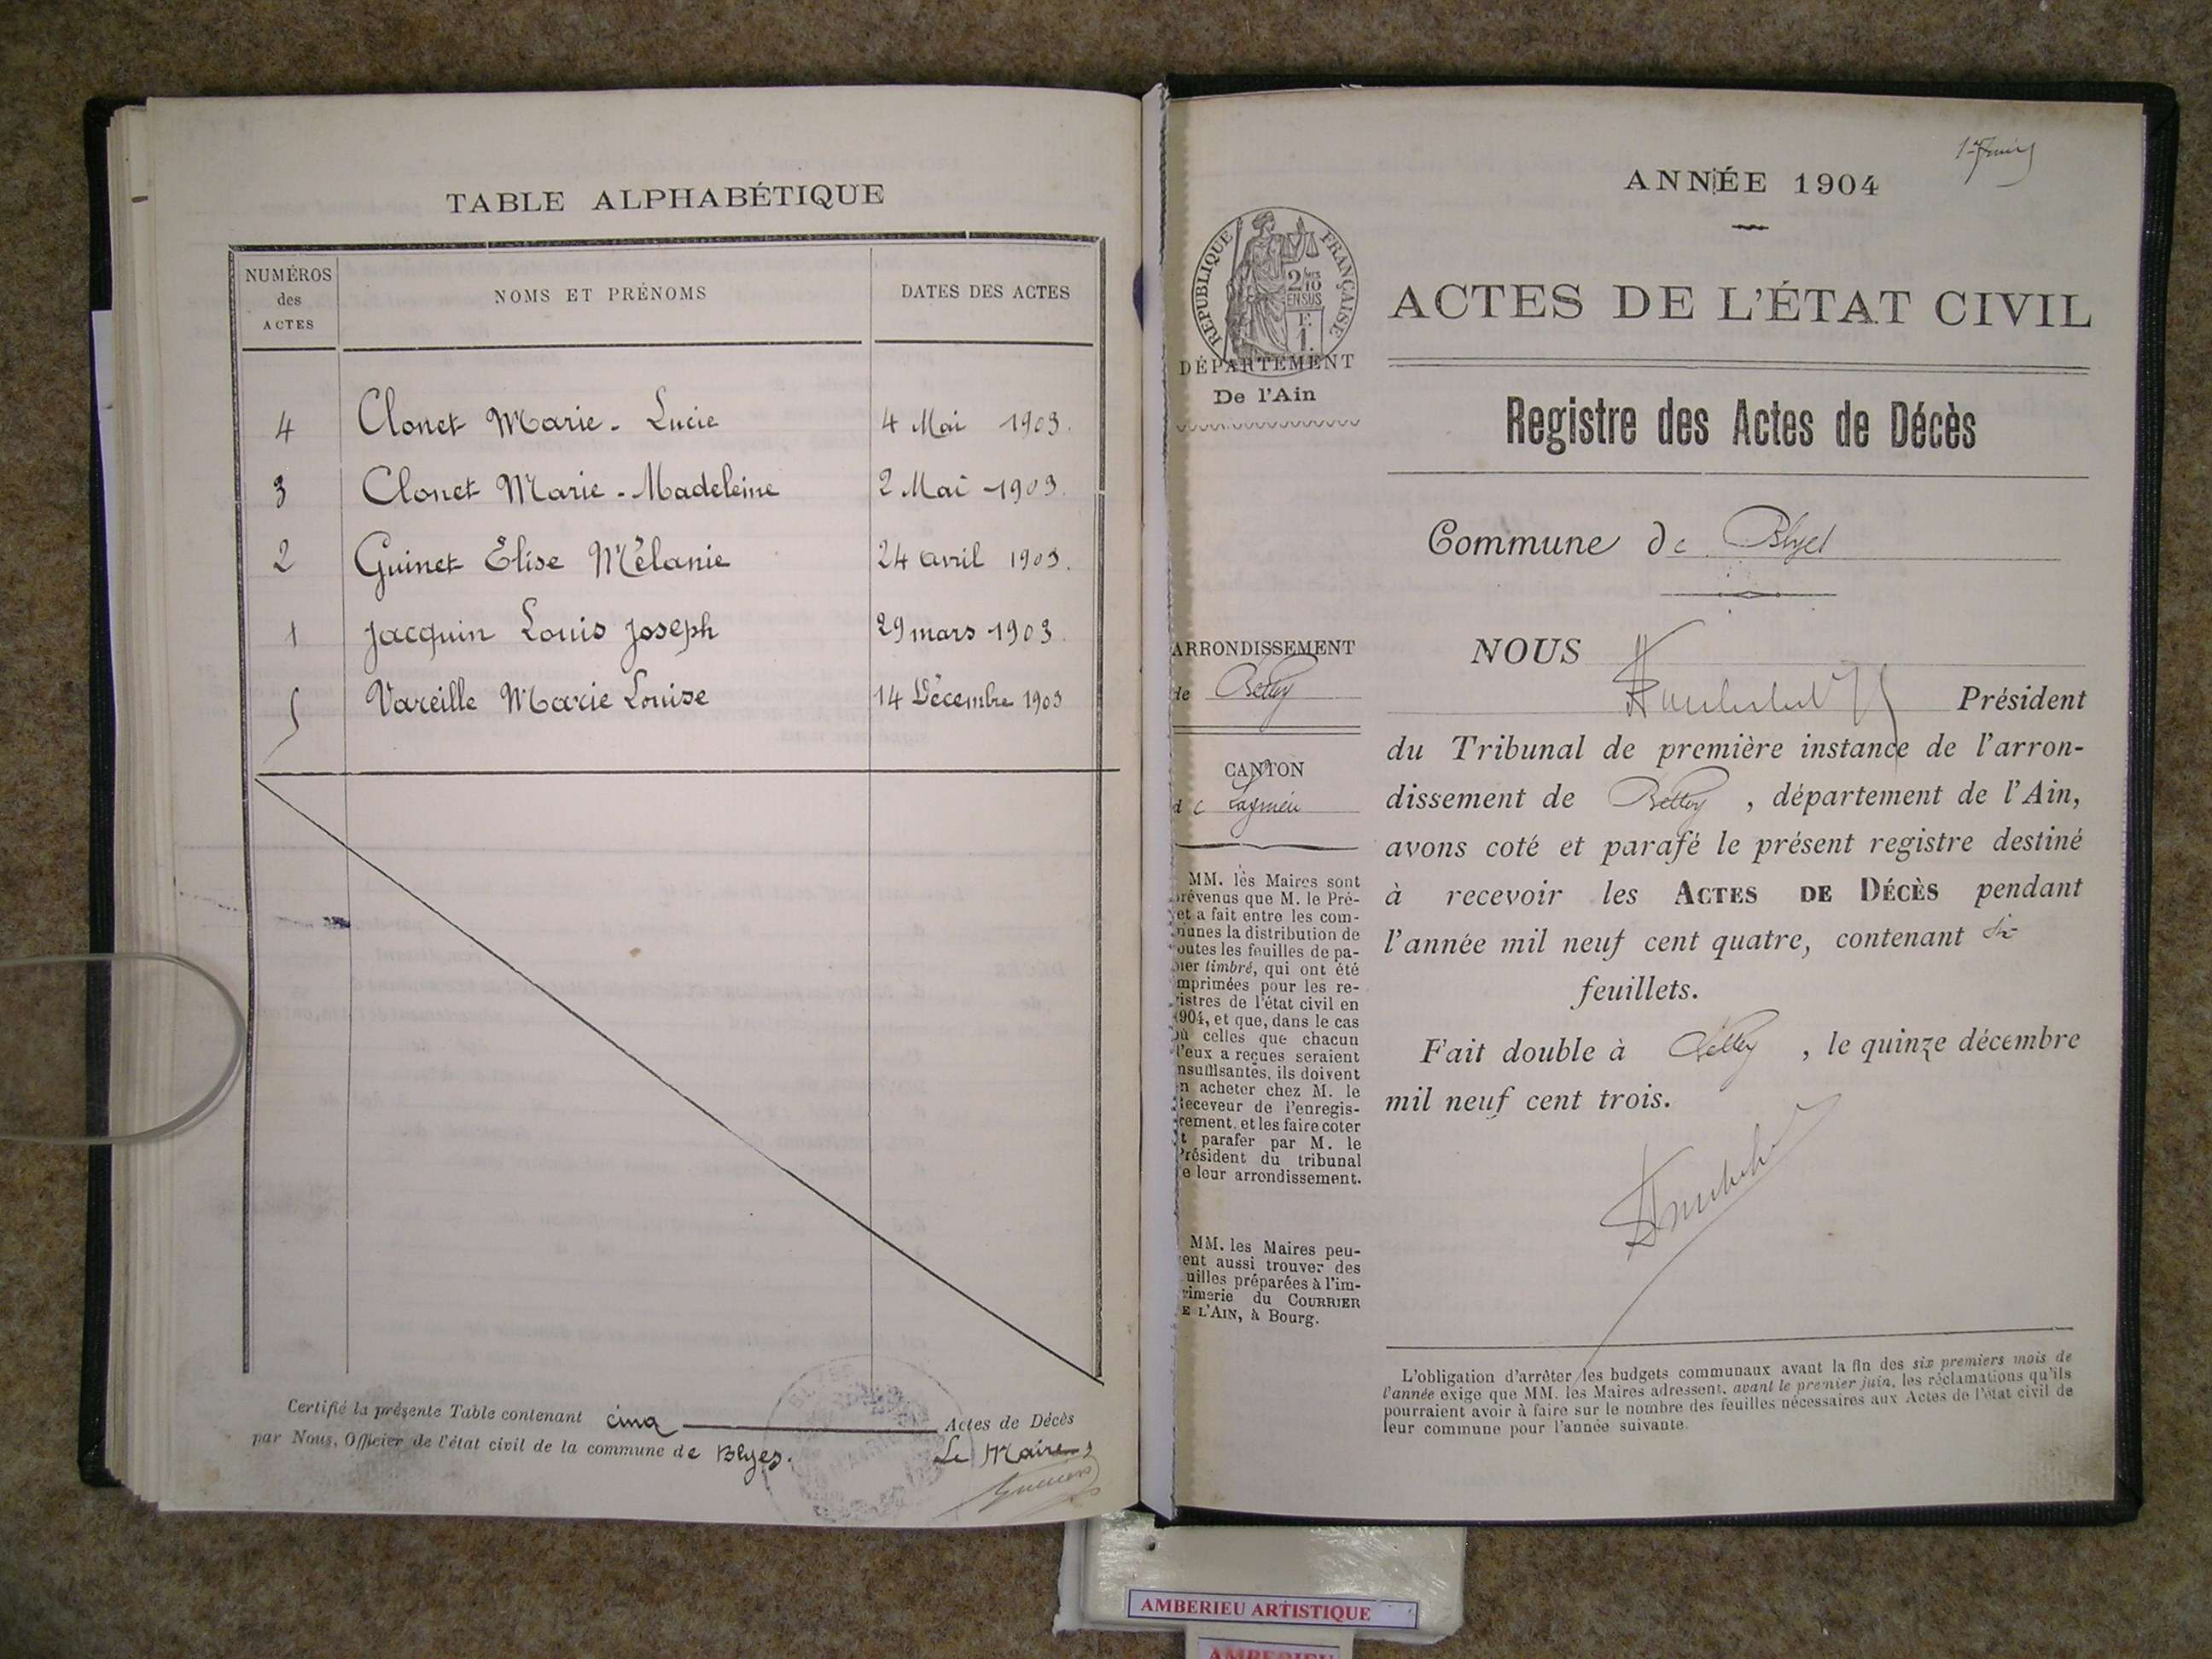 TABLE ALPHABÉTIQUE
NUMÉROS
des
ACTES
NOMS ET PRÉNOMS
DATES DES ACTES
4 Clonet Marie - Lucie 4 Mai 1903.
3 Clonet Marie - Madeleine 2 Mai 1903.
2 Guinet Élise Mélanie 24 avril 1903.
1 Jacquin Louis Joseph 29 mars 1903.
5 Vareille Marie Louise 14 Décembre 1903
Certifié la présente Table contenant cinq Actes de Décès
par Nous, Officier de l'état civil de la commune de Blyes.
Le Maire
ANNÉE 1904
RÉPUBLIQUE FRANÇAISE
2/10
EN SUS
F.
1.
DÉPARTEMENT
De l'Ain
ACTES DE L'ÉTAT CIVIL
Registre des Actes de Décès
Commune de Blyes
ARRONDISSEMENT
de Belley
CANTON
de Lagnieu
MM. les Maires sont
prévenus que M. le Pré-
fet a fait entre les com-
munes la distribution de
toutes les feuilles de pa-
pier timbré, qui ont été
imprimées pour les re-
gistres de l'état civil en
1904, et que, dans le cas
où celles que chacun
d'eux a reçues seraient
insuffisantes, ils doivent
en acheter chez M. le
Receveur de l'enregis-
trement, et les faire coter
et parafer par M. le
Président du tribunal
de leur arrondissement.
MM. les Maires peu-
vent aussi trouver des
feuilles préparées à l'im-
primerie du COURRIER
DE L'AIN, à Bourg.
NOUS
Président
du Tribunal de première instance de l'arron-
dissement de Belley, département de l'Ain,
avons coté et parafé le présent registre destiné
à recevoir les ACTES DE DÉCÈS pendant
l'année mil neuf cent quatre, contenant six
feuillets.
Fait double à Belley, le quinze décembre
mil neuf cent trois.
L'obligation d'arrêter les budgets communaux avant la fin des six premiers mois de
l'année exige que MM. les Maires adressent, avant le premier juin, les réclamations qu'ils
pourraient avoir à faire sur le nombre des feuilles nécessaires aux Actes de l'état civil de
leur commune pour l'année suivante.
AMBERIEU ARTISTIQUE
AMBERIEU